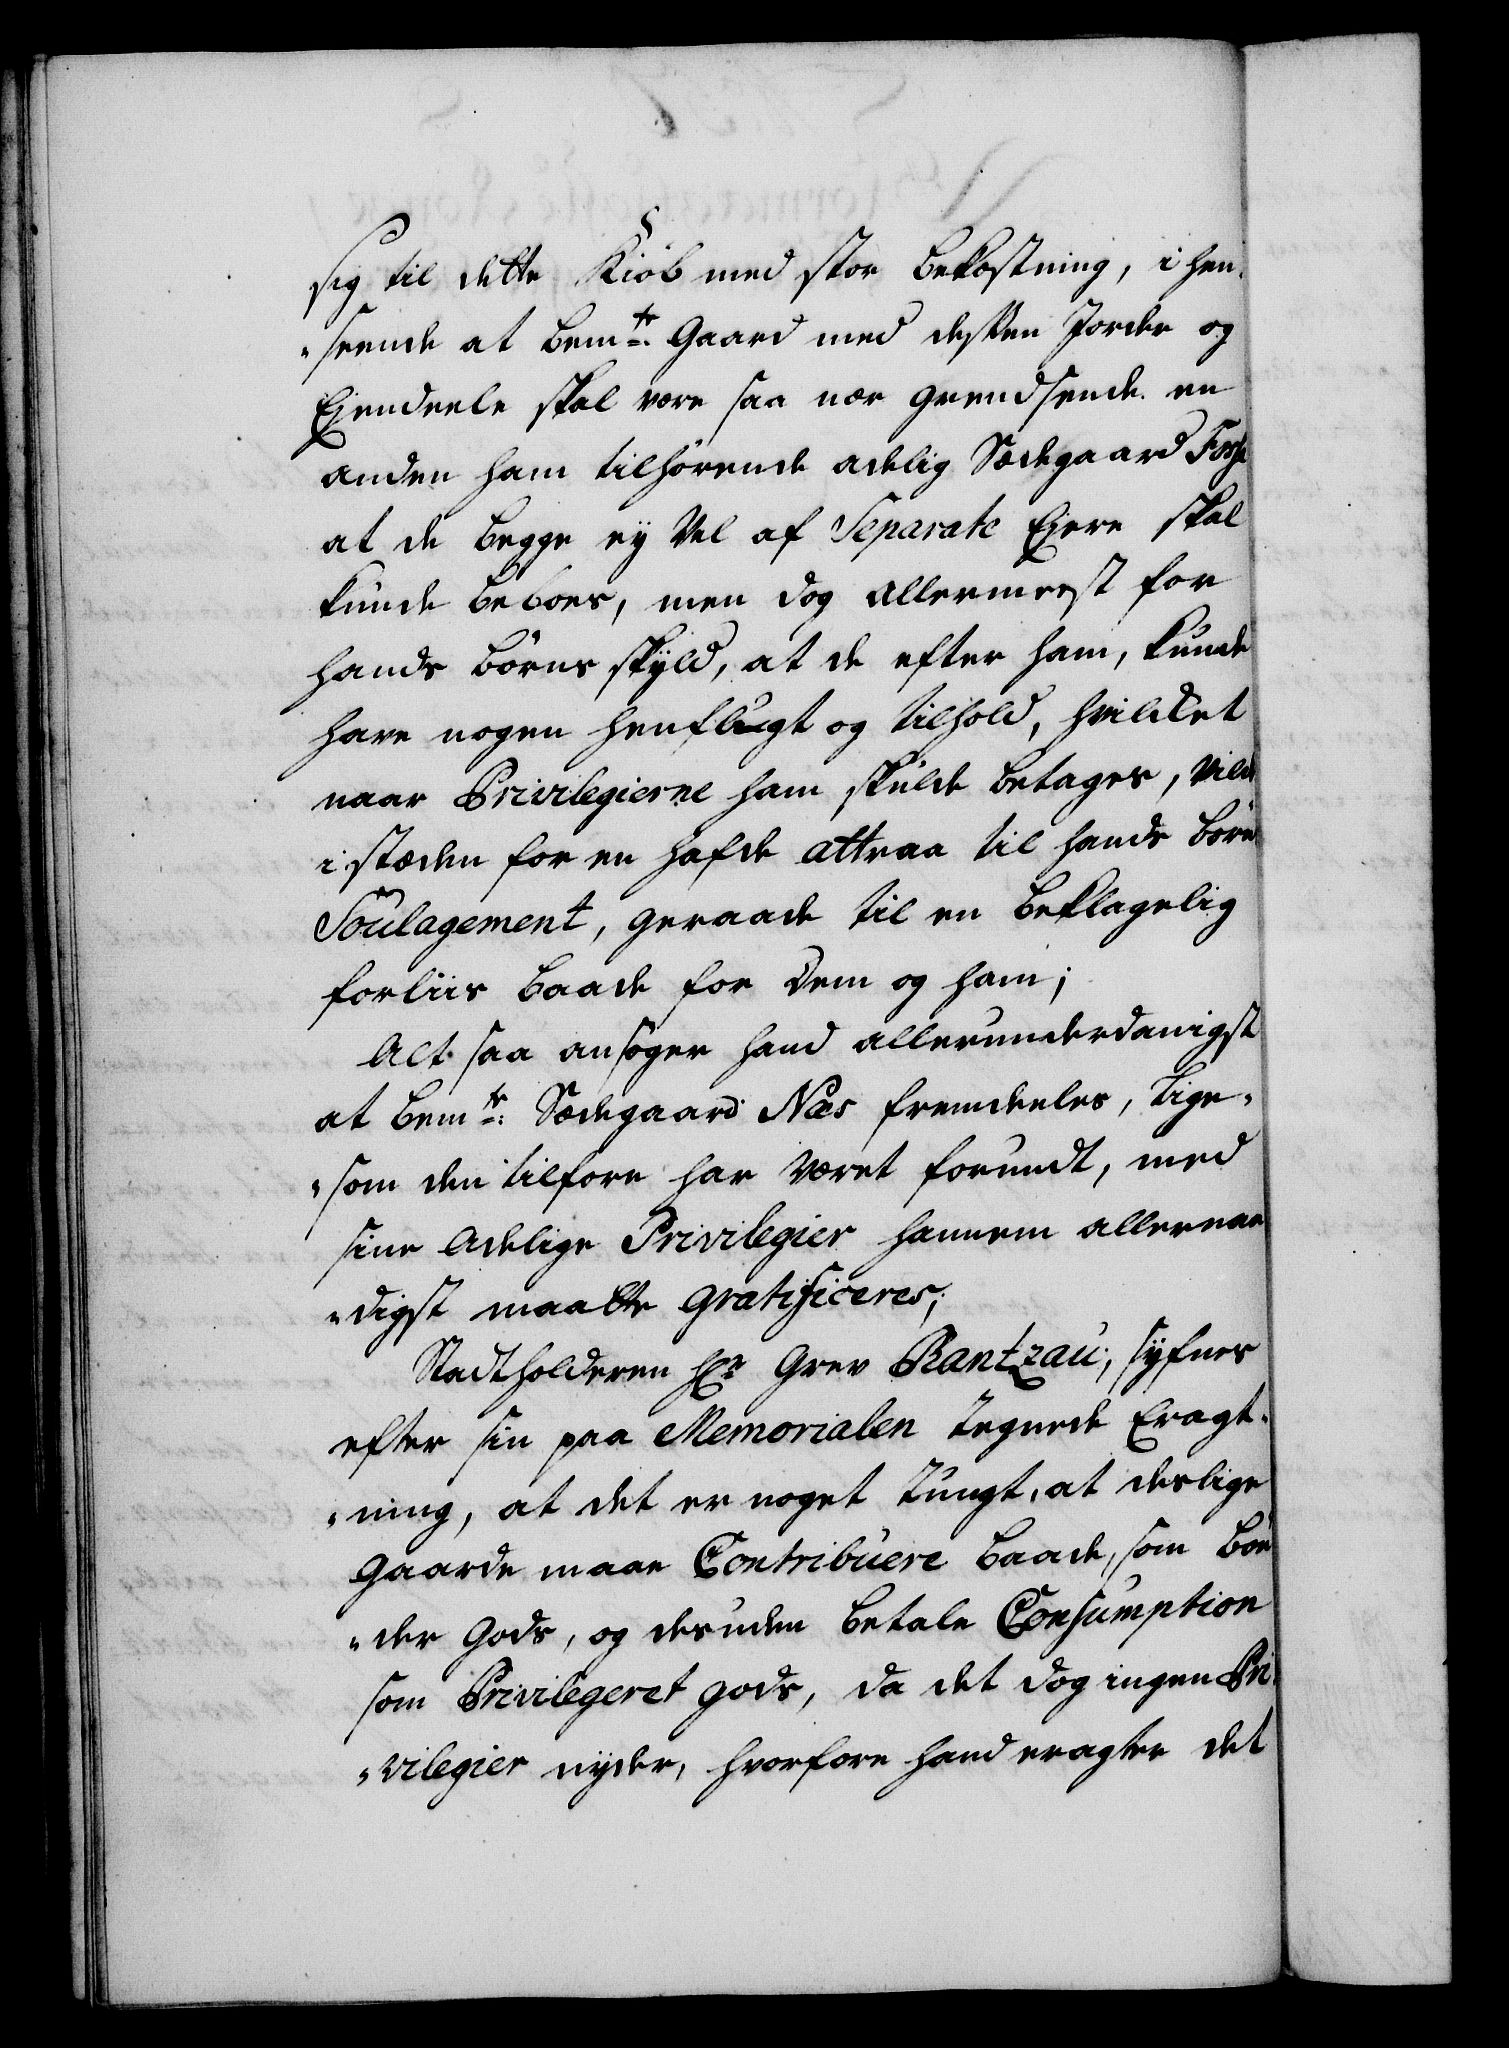 sig til dette Kiöb med stor bekostning, i hen¬
„seende at bemte. Gaard med desßen Jorder og
Ejendeele skal være saa nær grendsende en
anden ham tilhörende adelig Sædegaard
at de begge ej vel af Separate Ejere skal
kunde beboes, men dog allermeest for
hands börns skÿld, at de efter ham, kunde
have nogen henflugt og tilhold, hvilket
naar Privilegierne ham skulde betages, vilde
i stæden for en hafde attraa til hands börns
Soulagement, geraade til en beklagelig
forliis baade for dem og ham;
Alt saa ansöger hand allerunderdanigst
at bemte: Sædegaard Næs fremdeeles, lige¬
„som den tilforn har været forundt, med
sine Adelige Privilegier hannem allernaa
„digst maatte gratificeres;
Stadtholderen Hr Grev Rantzau, sÿfnes
efter sin paa Memorialen tegnede Eragt¬
„ning, at det er noget tungt, at deslige
gaarde maae Contribuere baade, som bön
„der gods, og desuden betale Consumption
som Privilegeret gods, da det dog ingen Pri¬
„vilegier nyder, hvorfore hand eragter det